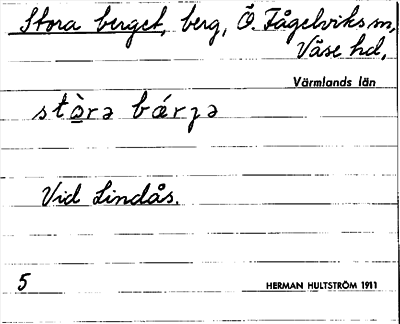 Stora berget, berg, Ö. Fågelviks sn,
Väse hd,
Värmlands län
stò̱rə bǽrɟə
Vid Lindås.
5
HERMAN HULTSTRÖM 1911